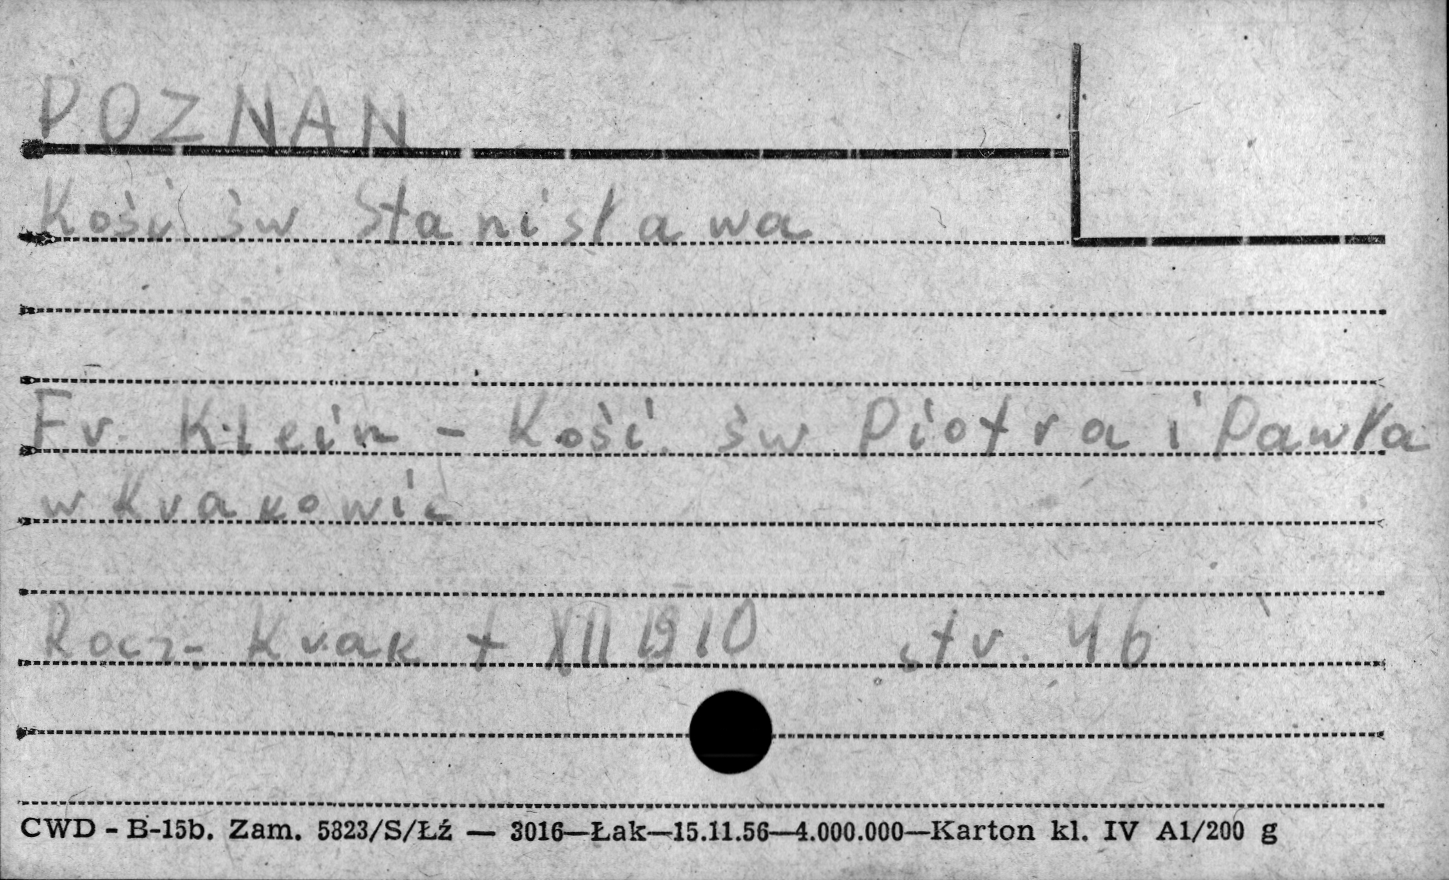 POZNAN
Kość św Stanisława
Fr. Klein - Kość. św Piotra i Pawła
w Krakowie
Rocz. Krak t XII 1910 str. 46
CWD - B-15b. Zam. 5823/S/Łź — 3016—Łak—15.11.56—4.000.000—Karton kl. IV A1/200 g